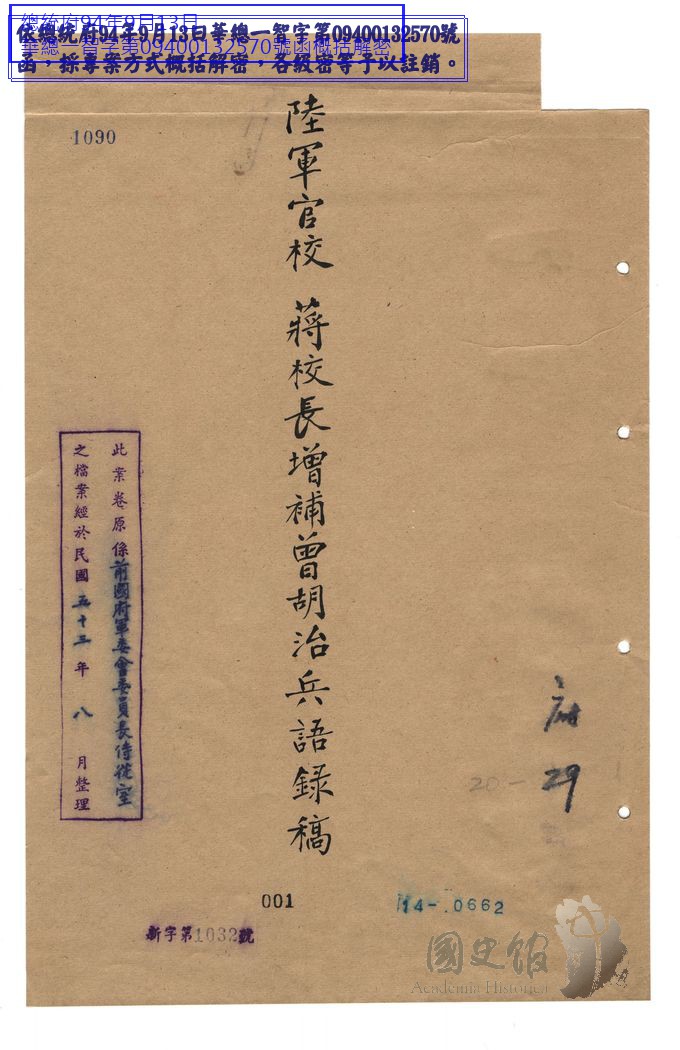 總統府94年9月13日
華總一智字第09400132570號函概括解密
依總統府94年9月13日華總一智字第09400132570號
函，採專案方式概括解密，各級密等予以註銷。
1090
陸軍官校 蔣校長增補曾胡治兵語錄稿
此案卷原係前國府軍委會委員長侍從室
之檔案經於民國五十三年八月整理
府
29
20-
001
14-.0662
新字第1032號
國史館
Academia Historica